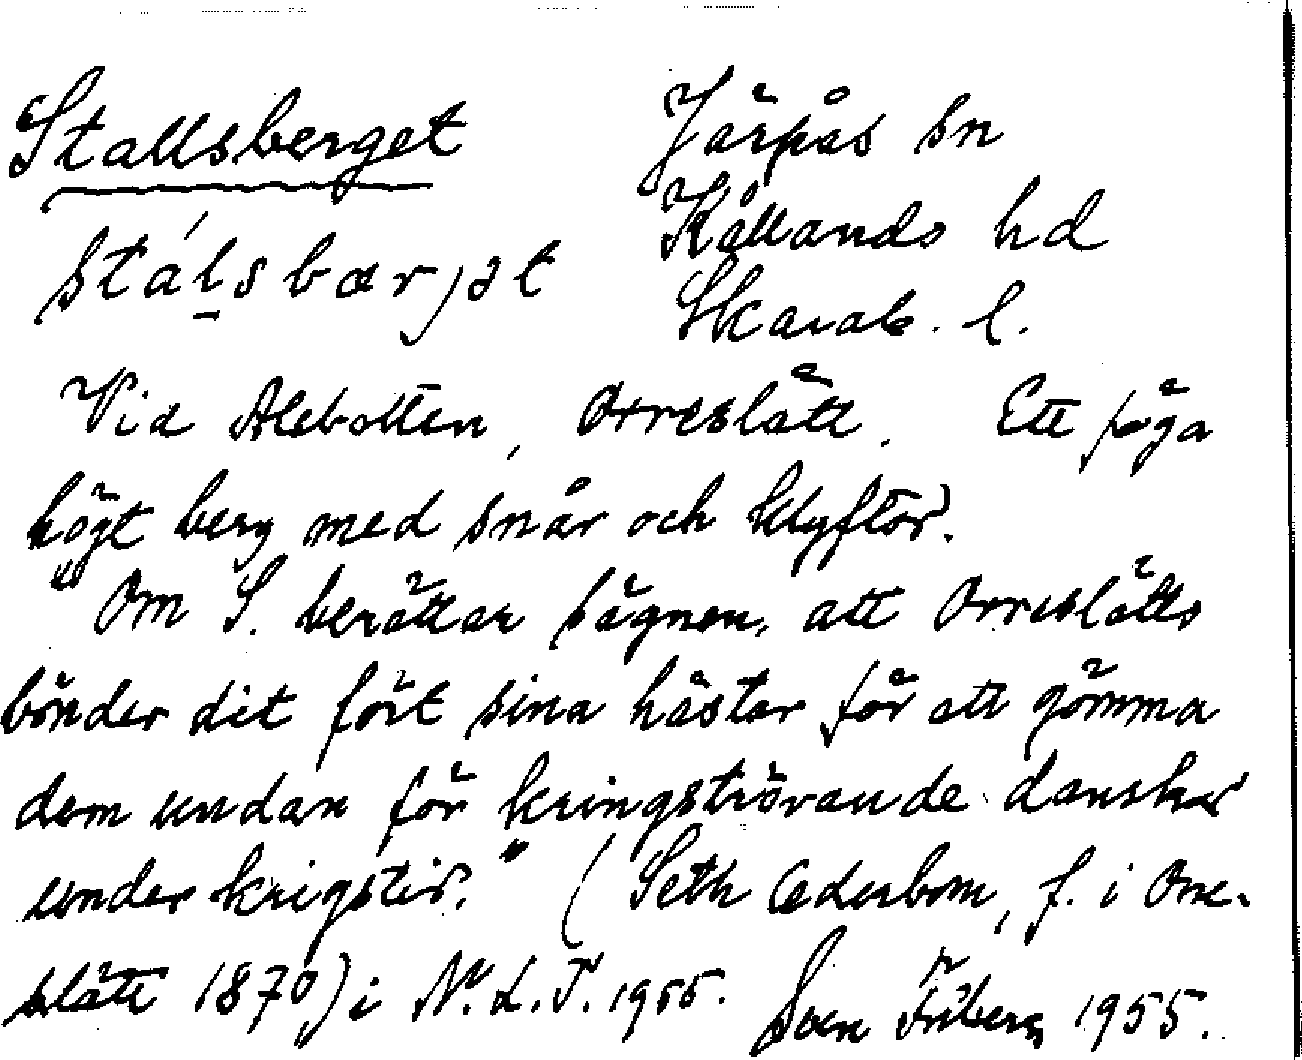 Stallsberget
Järpås sn
Kållands hd
stálsbærjət
Skarab. l.
Vid Alebotten, Orreslätt. Ett föga
högt berg med snår och klyftor.
"Om S. berättar sägnen, att Orreslätts
bönder dit fört sina hästar för att gömma
dem undan för kringströvande danskar
under krigstid." (Seth Cederbom, f. i Orre-
slätt 1870) i N. L. T. 1955. Sven Friberg 1955.